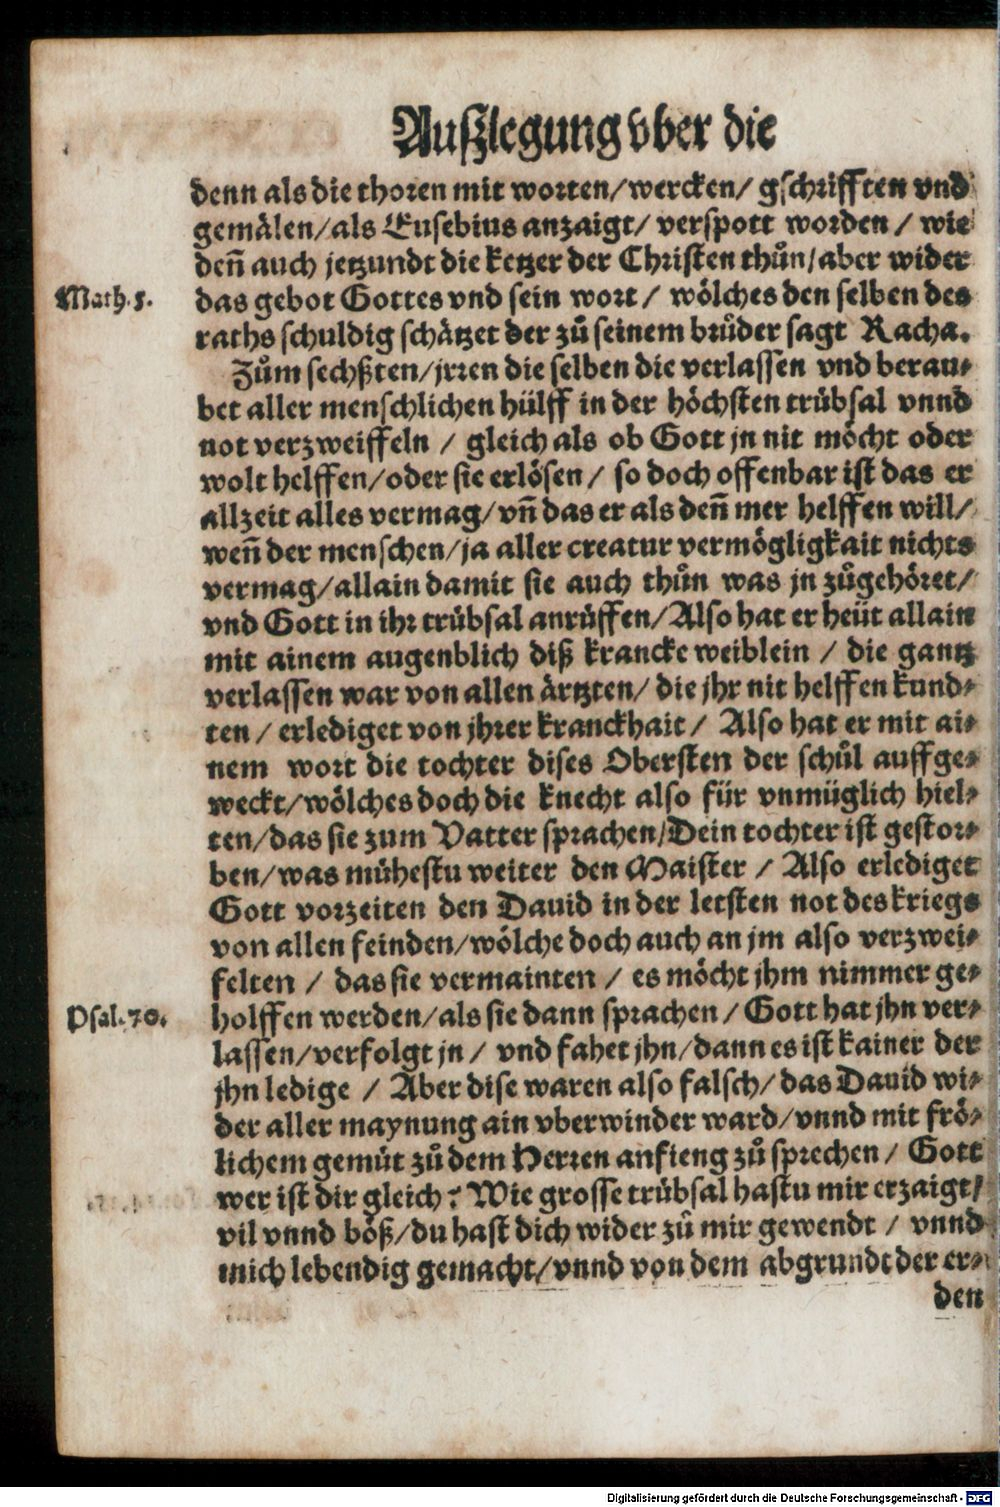 Außlegung vber die
denn als die thoren mit worten/wercken/ gschrifften vnd
gemälen/als Eusebius anzaigt/ verspott worden / wie
deñ auch jetzundt die ketzer der Christen thůn/aber wider
Math.5.
das gebot Gottes vnd sein wort / wölches den selben des
raths schuldig schätzet der zů seinem brůder sagt Racha.
Zům sechßten/jrren die selben die verlassen vnd berau⸗
bet aller menschlichen hülff in der höchsten trübsal vnnd
not verzweiffeln / gleich als ob Gott jn nit möcht oder
wolt helffen/oder sie erlösen / so doch offenbar ist das er
allzeit alles vermag/vñ das er als deñ mer helffen will/
weñ der menschen/ja aller creatur vermögligkait nichts
vermag/allain damit sie auch thůn was jn zůgehöret/
vnd Gott in ihr trübsal anrüffen/Also hat er heüt allain
mit ainem augenblich diß krancke weiblein / die gantz
verlassen war von allen ärtzten/ die jhr nit helffen kund⸗
ten / erlediget von jhrer kranckhait / Also hat er mit ai⸗
nem wort die tochter dises Obersten der schůl auffge⸗
weckt/wölches doch die knecht also für vnmüglich hiel⸗
ten/das sie zum Vatter sprachen/Dein tochter ist gestor⸗
ben/was mühestu weiter den Maister / Also erlediget
Gott vorzeiten den Dauid in der letsten not des kriegs
von allen feinden/wölche doch auch an jm also verzwei⸗
felten / das sie vermainten / es möcht jhm nimmer ge⸗
Psal.70.
holffen werden/als sie dann sprachen / Gott hat jhn ver⸗
lassen/verfolgt jn / vnd fahet jhn/dann es ist kainer der
jhn ledige / Aber dise waren also falsch/das Dauid wi⸗
der aller maynung ain vberwinder ward/vnnd mit frö⸗
lichem gemüt zů dem Herren anfieng zů sprechen / Gott
wer ist dir gleich? Wie grosse trübsal hastu mir erzaigt/
vil vnnd böß/du hast dich wider zů mir gewendt / vnnd
mich lebendig gemacht/vnnd von dem abgrundt der er⸗
den
Digitalisierung gefördert durch die Deutsche Forschungsgemeinschaft - DFG